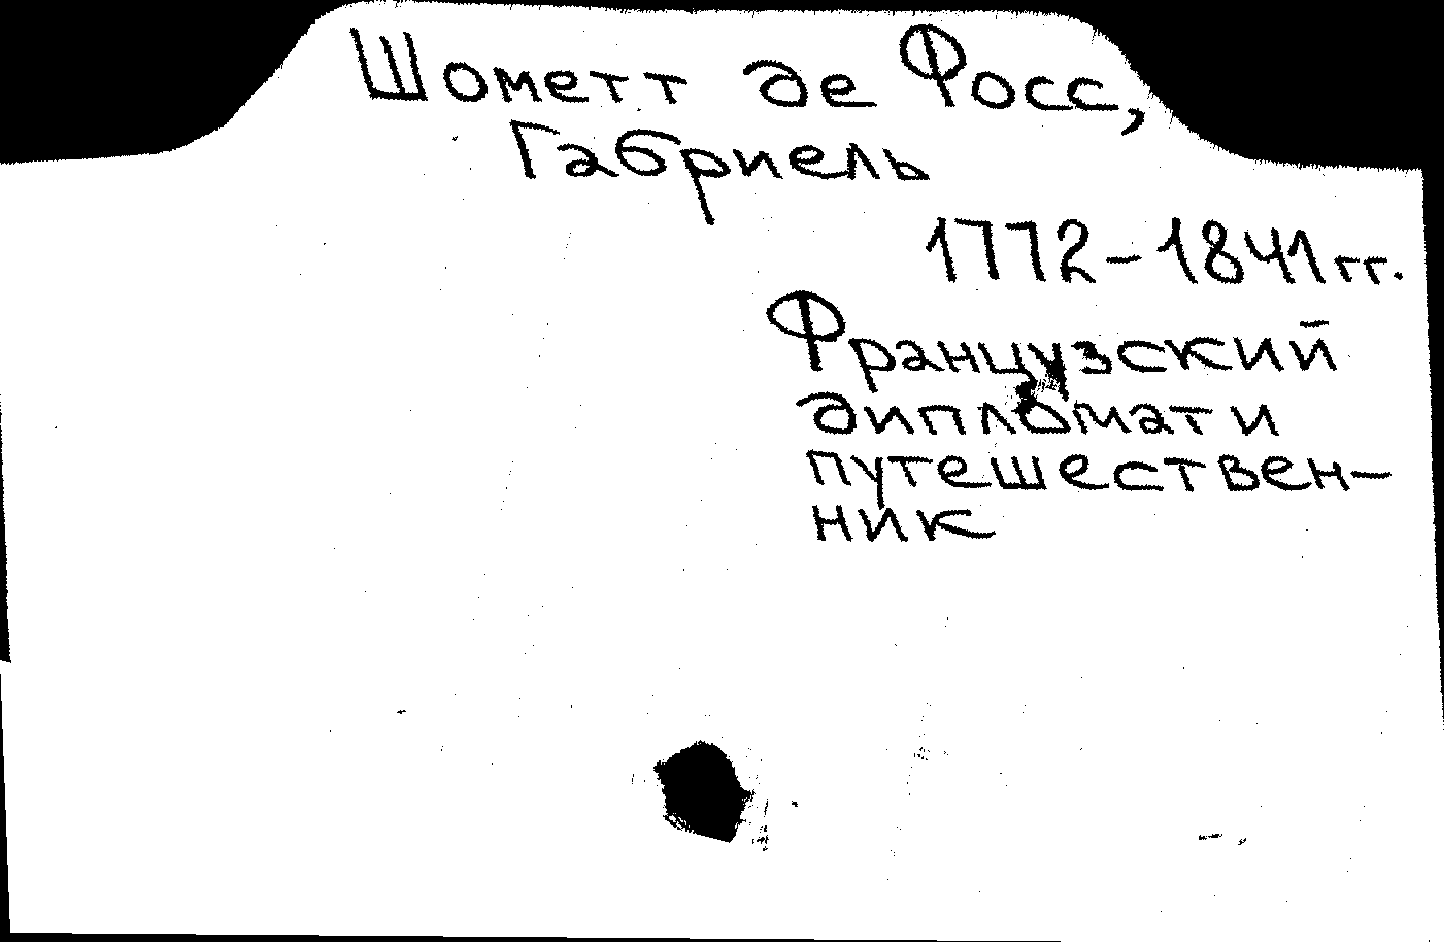 Шометт де Фосс,
Габриель
1772-1841 гг.
Французский
дипломат и
путешествен-
ник